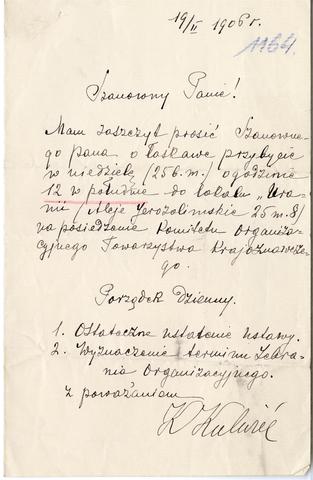 19/II 1906 r.
1154.
Szanowny Panie!
Mam zaszczyt prosić Szanowne-
go pana o łaskawe przybycie
w niedzielę (25 b. m.) o godzinie
12 w południe do lokalu „Ura-
nii (Aleje Jerozolimskie 25 m. 8)
na posiedzenie Komitetu Organiza-
cyjnego Towarzystwa Krajoznawcze-
go.
Porządek Dzienny.
1. Ostateczne ustalenie ustawy.
2. Wyznaczenie terminu Zebra-
nia Organizacyjnego.
z poważaniem
K Kulwieć